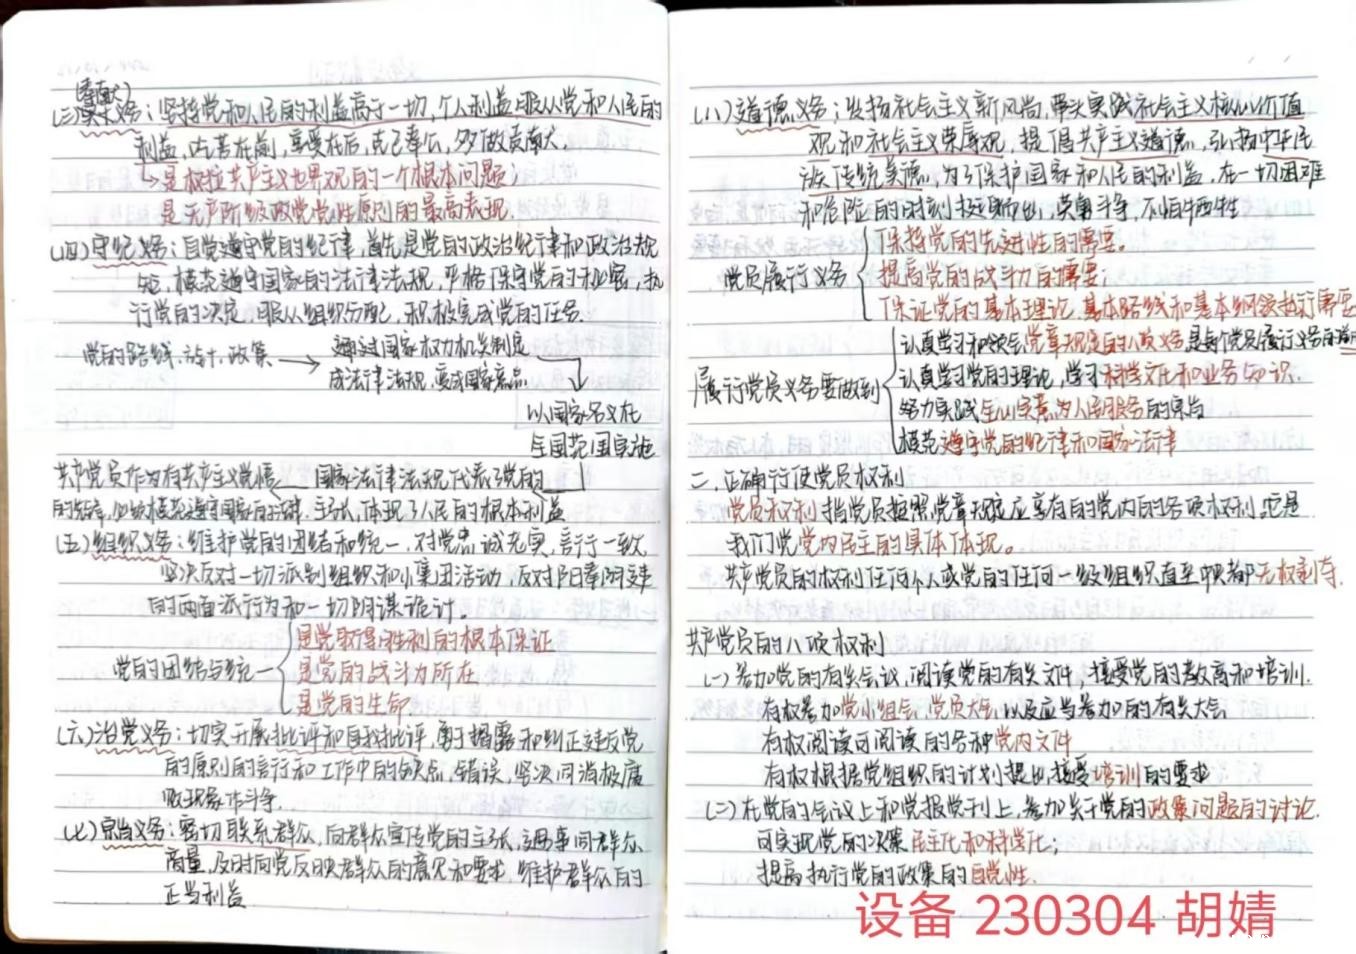 (奉献)
(三)奉献义务：坚持党和人民的利益高于一切，个人利益服从党和人民的
利益，吃苦在前，享受在后，克己奉公，多做贡献。
→是树立共产主义世界观的一个根本问题；
是无产阶级政党党性原则的最高表现.
(四)守纪义务：自觉遵守党的纪律，首先是党的政治纪律和政治规
矩，模范遵守国家的法律法规，严格保守党的秘密，执
行党的决定，服从组织分配，积极完成党的任务.
党的路线、方针、政策 → 通过国家权力机关制定
成法律法规，变成国家意志
以国家名义在
全国范围实施
共产党员作为有共产主义觉悟 国家法律法规代表了党的
的先锋，必须模范遵守国家的法律. 主张，体现了人民的根本利益
(五)组织义务：维护党的团结和统一，对党忠诚老实，言行一致，
坚决反对一切派别组织和小集团活动，反对阳奉阴违
的两面派行为和一切阴谋诡计。
党的团结与统一
是党取得胜利的根本保证
是党的战斗力所在
是党的生命
(六)治党义务：切实开展批评和自我批评，勇于揭露和纠正违反党
的原则的言行和工作中的缺点、错误，坚决同消极腐
败现象作斗争.
(七)宗旨义务：密切联系群众，向群众宣传党的主张，遇事同群众
商量，及时向党反映群众的意见和要求，维护群众的
正当利益
(八)道德义务：发扬社会主义新风尚，带头实践社会主义核心价值
观和社会主义荣辱观，提倡共产主义道德，弘扬中华民
族传统美德，为了保护国家和人民的利益，在一切困难
和危险的时刻挺身而出，英勇斗争，不怕牺牲
党员履行义务
保持党的先进性的需要。
提高党的战斗力的需要；
保证党的基本理论、基本路线和基本纲领执行需要
履行党员义务要做到
认真学习和领会党章规定的八项义务，是每个党员履行义务的前提
认真学习党的理论，学习科学文化和业务知识.
努力实践全心全意为人民服务的宗旨
模范遵守党的纪律和国家法律
二、正确行使党员权利
党员权利指党员按照党章规定应享有的党内的各项权利，它是
我们党党内民主的具体体现。
共产党员的权利任何个人或党的任何一级组织直至中央都无权剥夺.
共产党员的八项权利
(一)参加党的有关会议，阅读党的有关文件，接受党的教育和培训.
有权参加党小组会、党员大会以及应当参加的有关大会
有权阅读可阅读的各种党内文件
有权根据党组织的计划提出接受培训的要求
(二)在党的会议上和党报党刊上，参加关于党的政策问题的讨论.
可实现党的决策民主化和科学化；
提高执行党的政策的自觉性.
设备 230304 胡婧